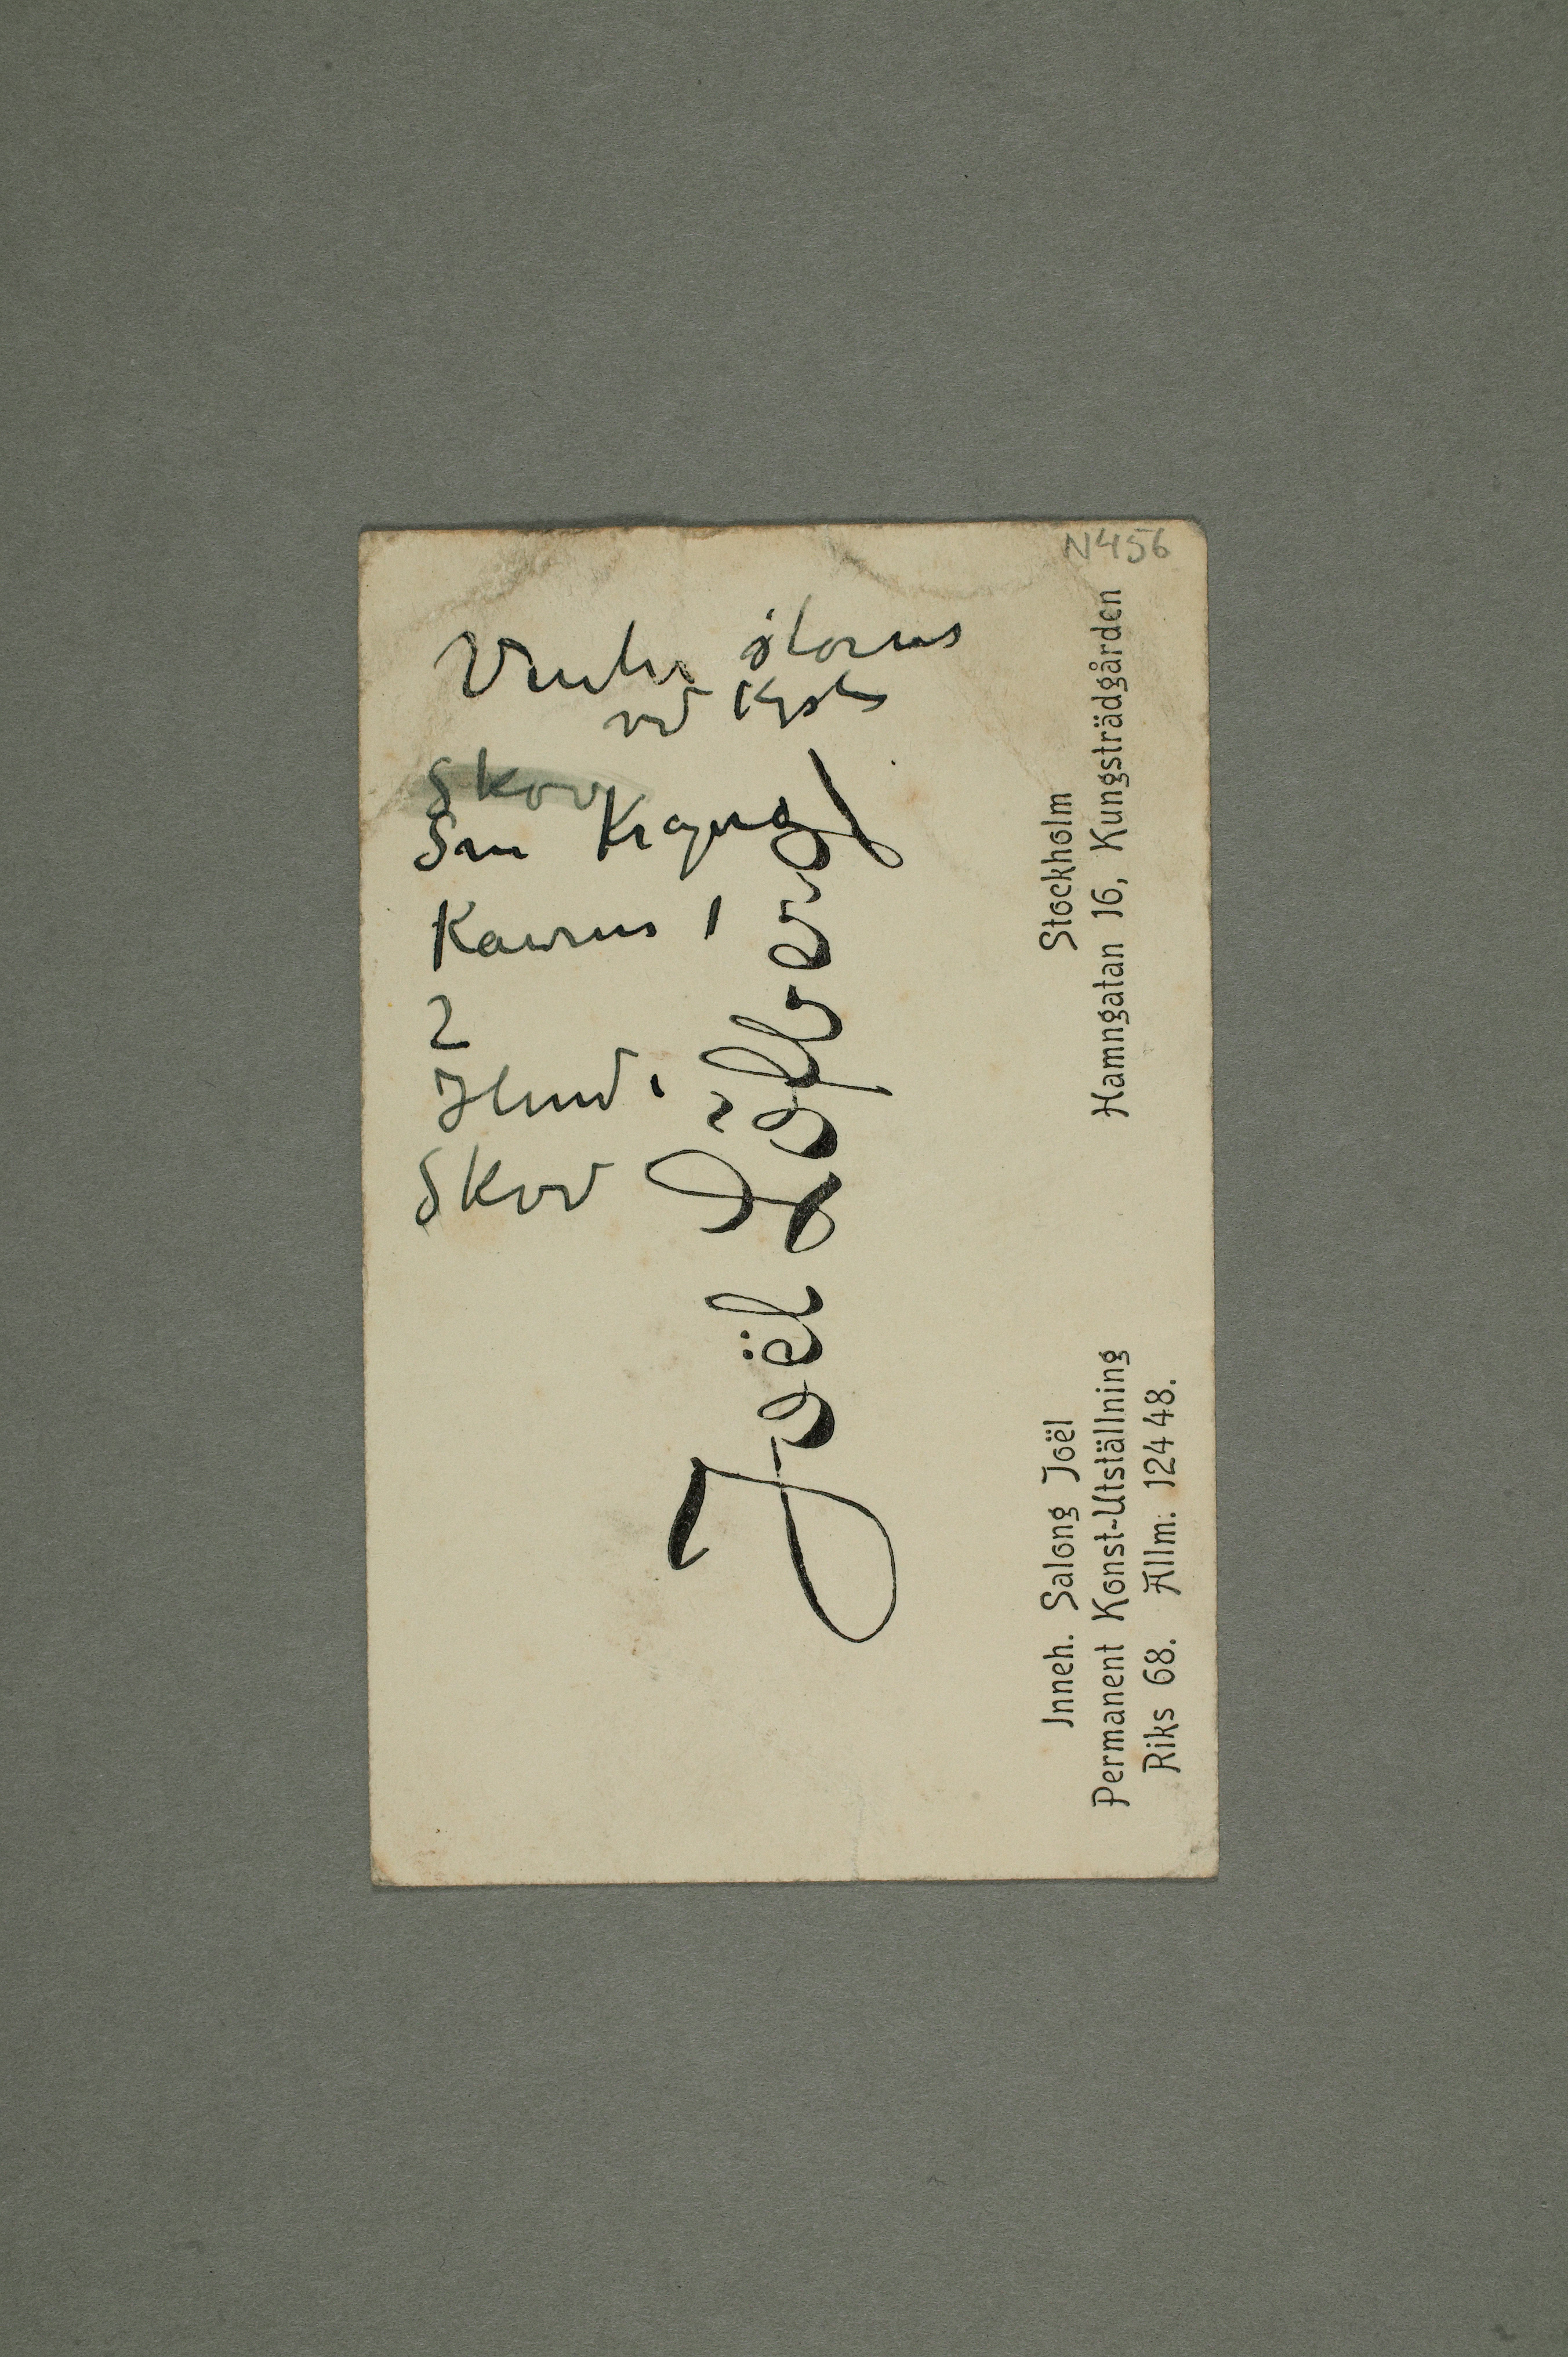 N456
Vinter storm
ved Kysten
Skov
Sm Kragerø
Kavrin 1
2
Hund i
Skov
Joël Löfberg
Inneh. Salong Joël
Permanent Konst-Utställning
Riks 68. Allm. 124 48.
Stockholm
Hamngatan 16, Kungsträdgården